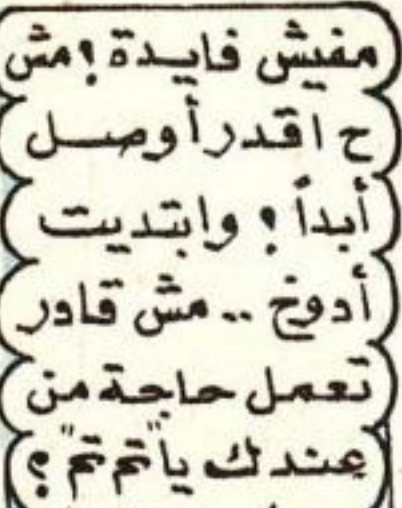 مفيش فايدة ؟ مش
ح اقدر أوصل
أبداً ؟ وابتديت
أدوخ .. مش قادر
تعمل حاجة من
عندك يا "تم تم" ؟